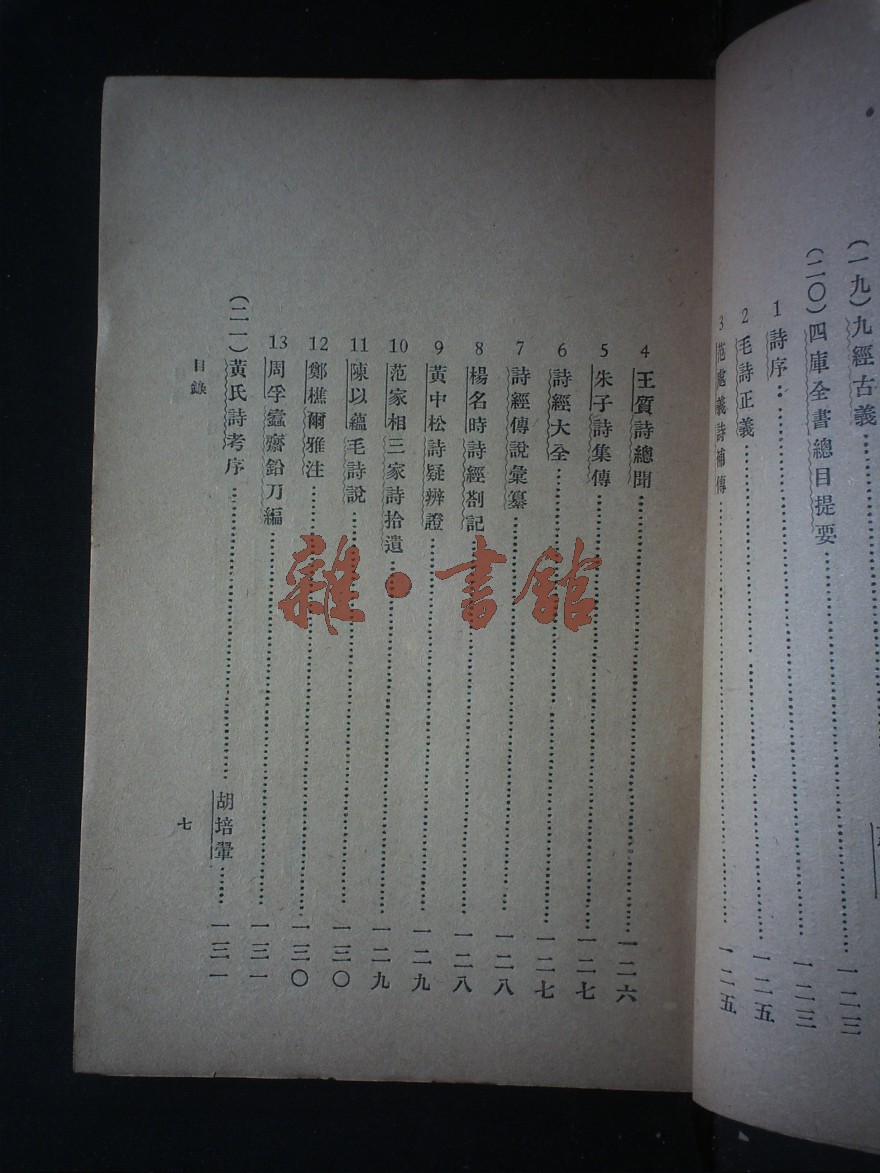 (一九)九經古義……一二三
(二〇)四庫全書總目提要……一二三
1 詩序……一二五
2 毛詩正義……一二五
3 范處義詩補傳……一二五
4 王質詩總聞……一二六
5 朱子詩集傳……一二七
6 詩經大全……一二七
7 詩經傳說彙纂……一二八
8 楊名時詩經劄記……一二八
9 黃中松詩疑辨證……一二九
10 范家相三家詩拾遺……一二九
11 陳以蘊毛詩說……一三〇
12 鄭樵爾雅注……一三〇
13 周孚蠹齋鉛刀編……一三一
(二一)黃氏詩考序……胡培翬……一三一
目錄
七
雜·書館